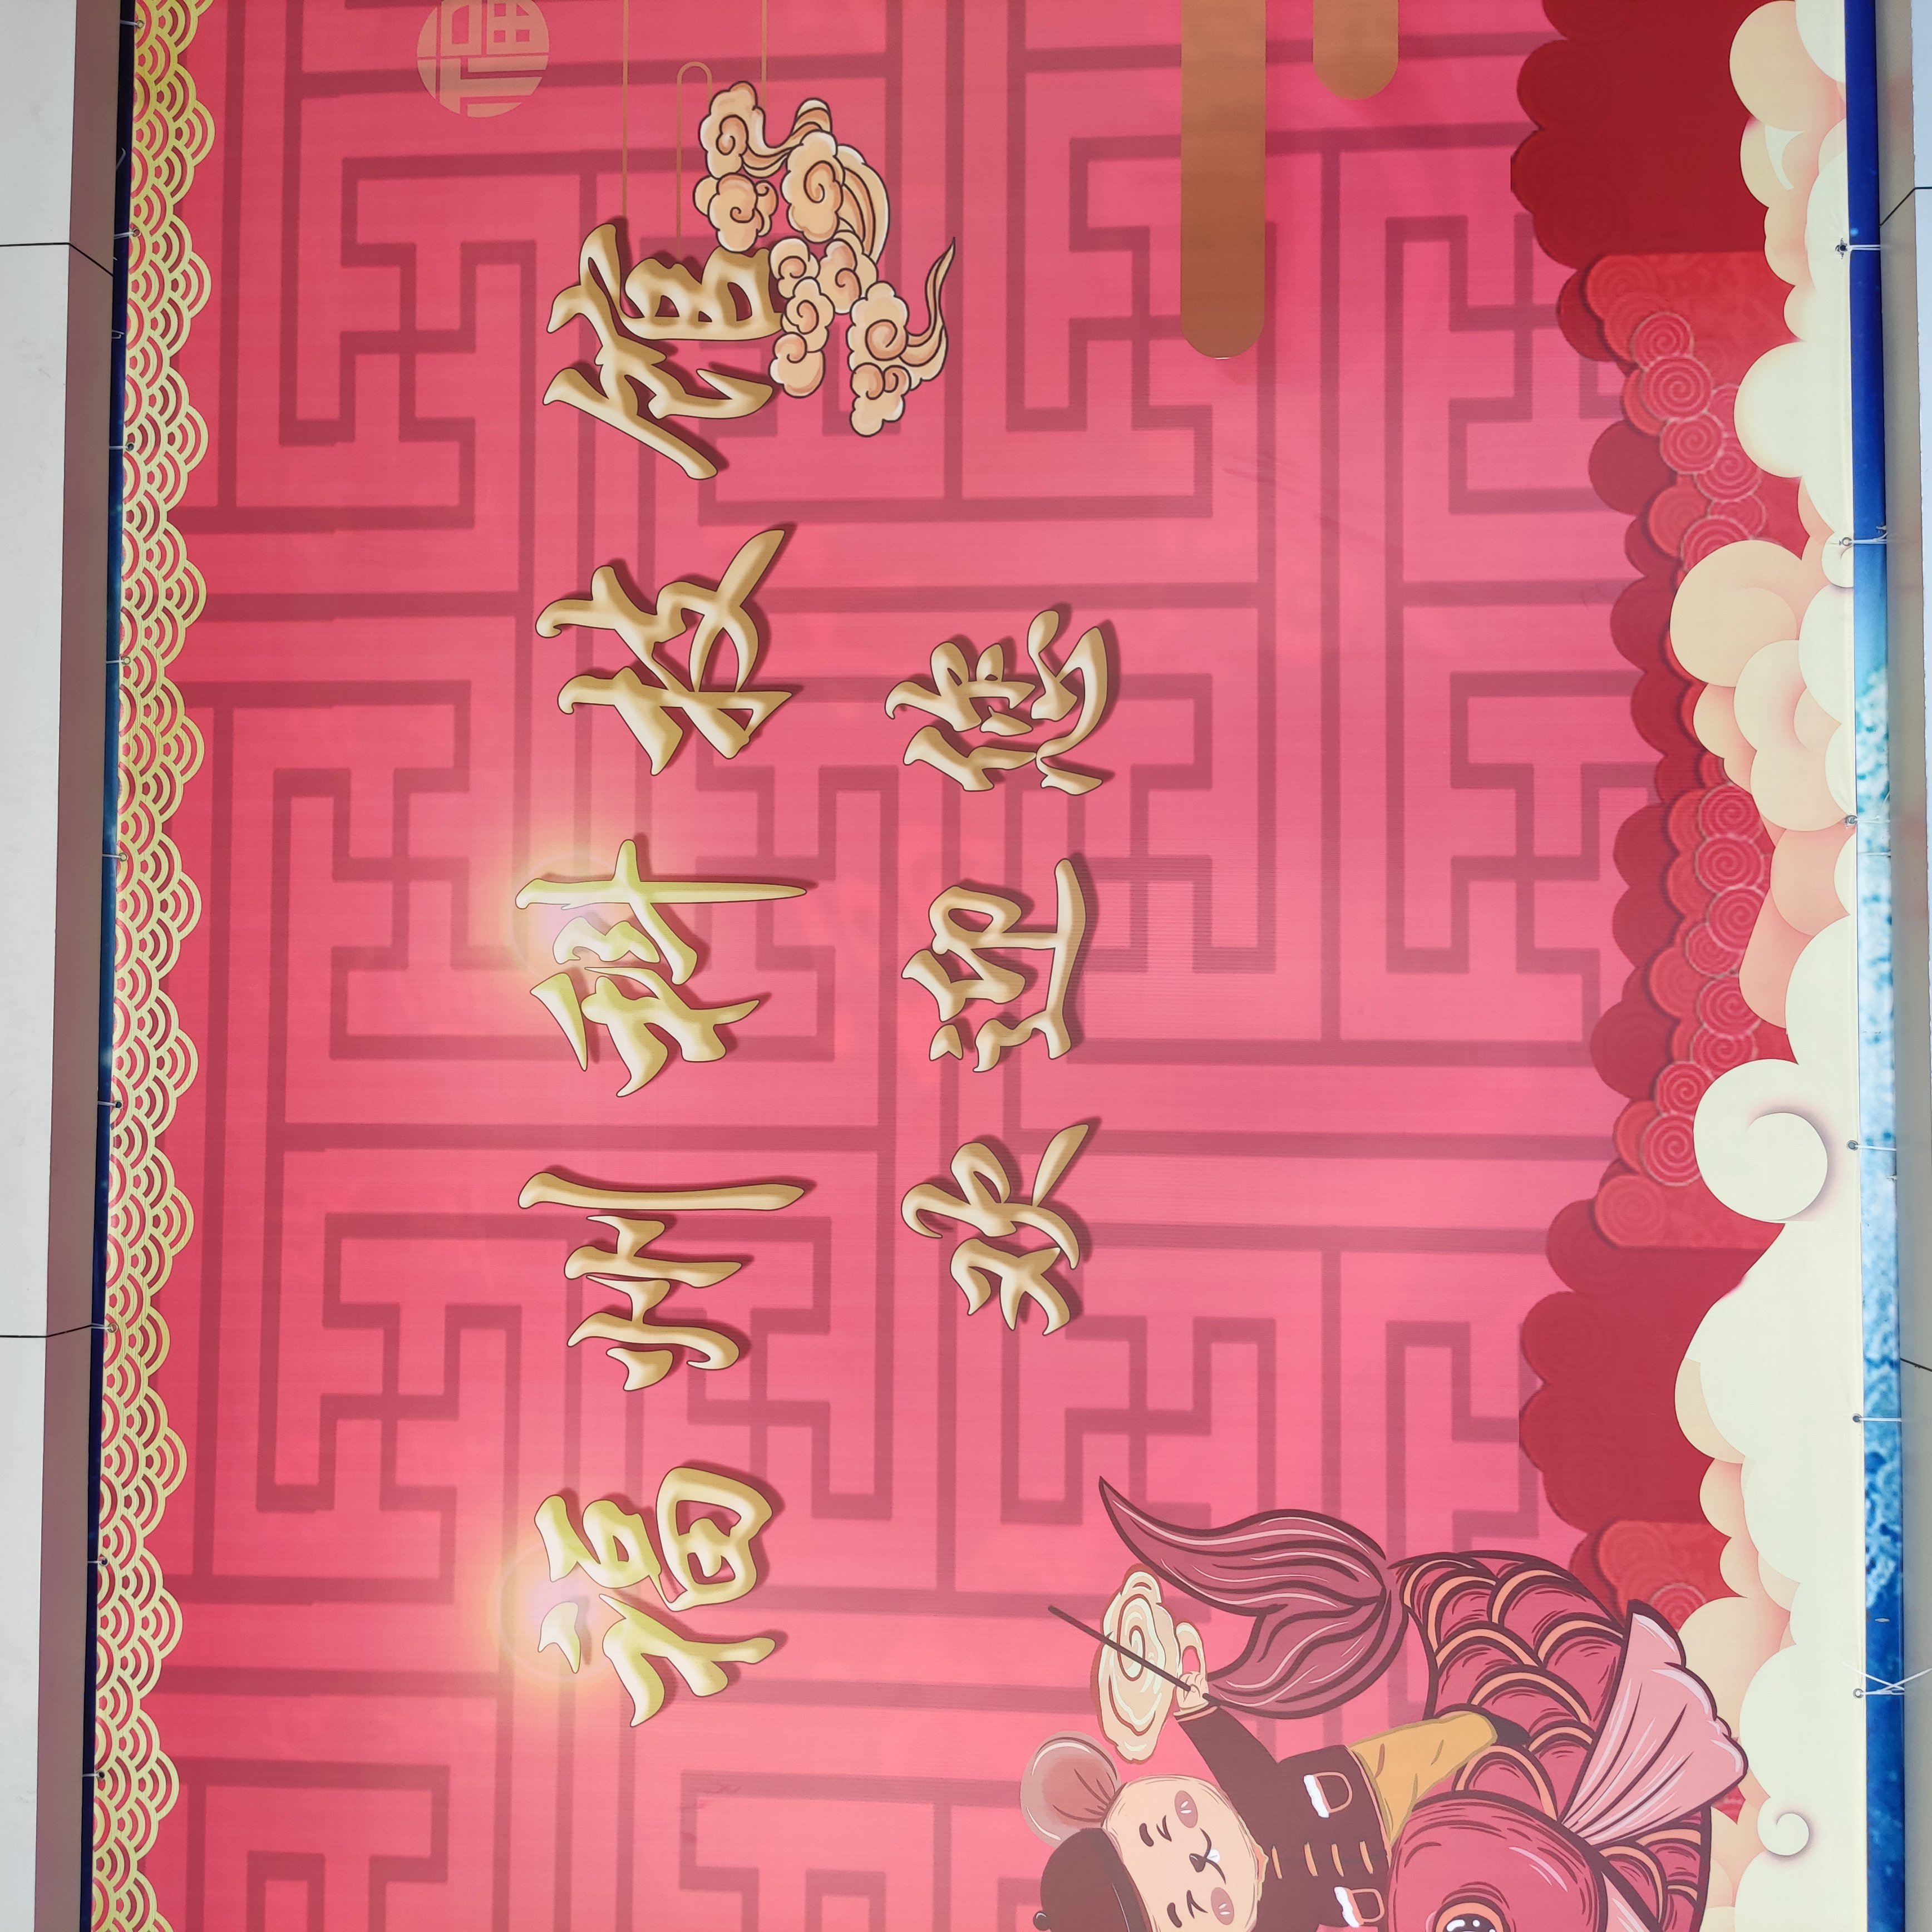 福州科技馆
欢迎您